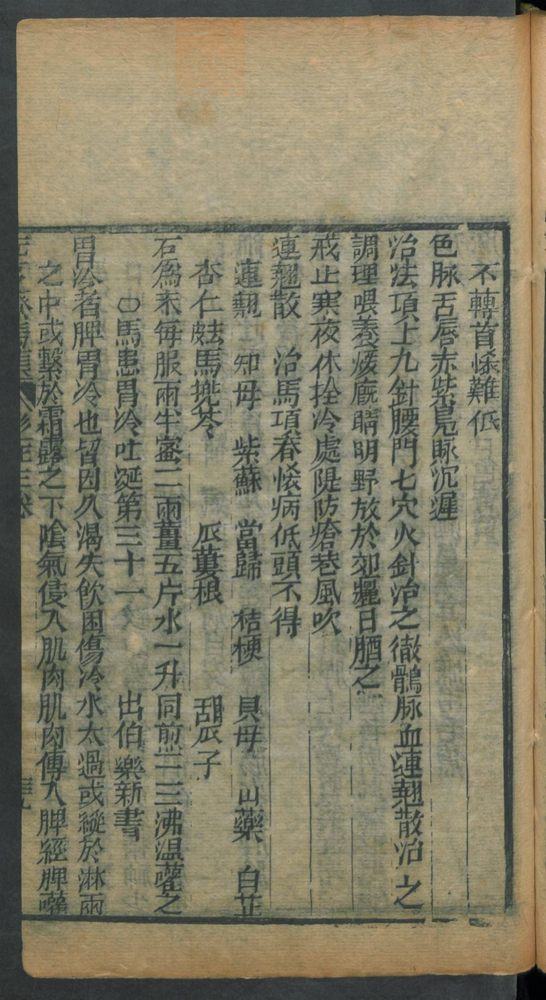 不轉首㑛難低
色脉舌唇赤紫見脉沉遲
治法項上九針腰門七穴火針治之徹鶻脉血連翹散治之
調理喂養煖廐晴明野放於郊曬日䐛之
戒止寒夜休拴冷處隄防簷巷風吹
連翹散 治馬項脊㑛病低頭不得
連翹 知母 紫蘇 當歸 桔梗 貝母 山藥 白芷
杏仁 馬兜苓 瓜蔞根 甜瓜子
右為末每服兩半蜜二兩薑五片水一升同煎三沸溫灌之
○馬患胃冷吐涎第三十一 出伯樂新書
胃冷者脾胃冷也皆因久渴失飲困傷冷水太過或縱於淋雨
之中或繫於霜露之下陰氣侵入肌肉肌肉傳入脾經脾